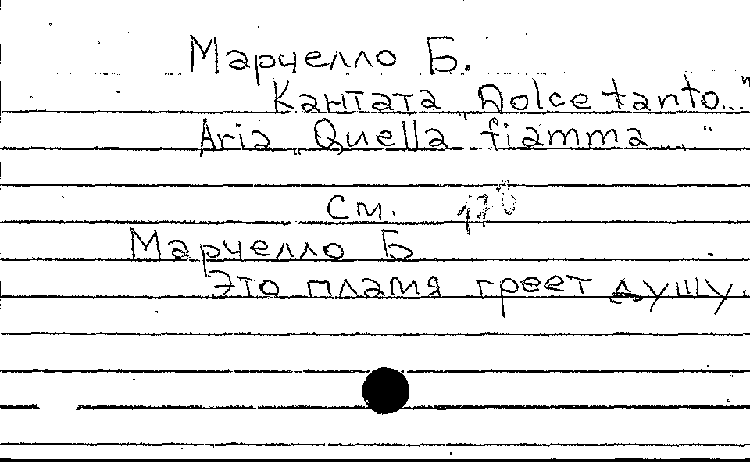 Марчелло Б.
Кантата „Dolce tanto..."
Aria „Quella fiamma..."
см.
Марчелло Б
Это пламя греет душу.